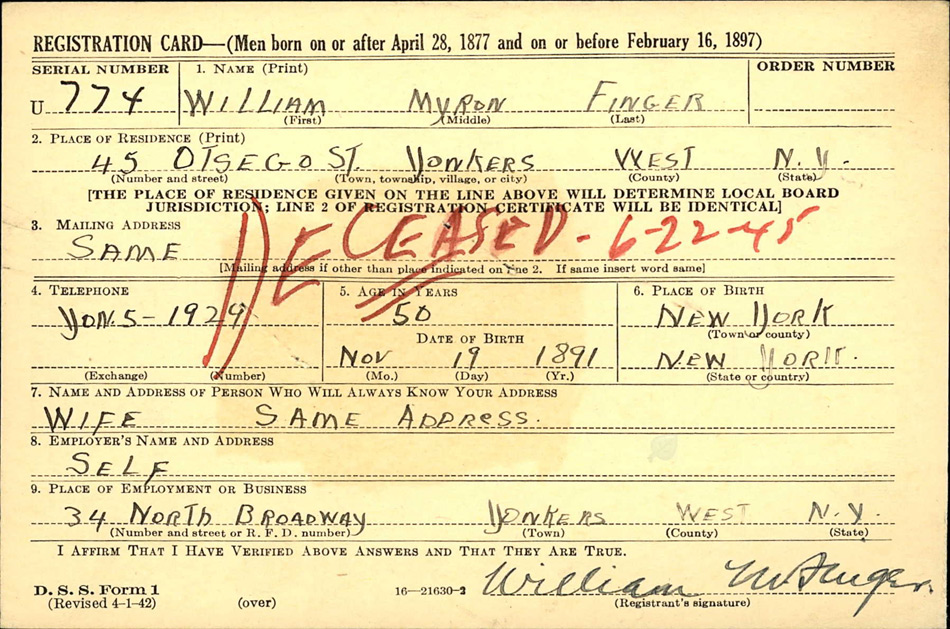 REGISTRATION CARD—(Men born on or after April 28, 1877 and on or before February 16, 1897)
SERIAL NUMBER 1. NAME (Print) ORDER NUMBER
U 774 WILLIAM MYRON FINGER
(First) (Middle) (Last)
2. PLACE OF RESIDENCE (Print)
45 OTSEGO ST. YONKERS WEST N.Y.
(Number and street) (Town, township, village, or city) (County) (State)
[THE PLACE OF RESIDENCE GIVEN ON THE LINE ABOVE WILL DETERMINE LOCAL BOARD
JURISDICTION; LINE 2 OF REGISTRATION CERTIFICATE WILL BE IDENTICAL]
DECEASED - 6-22-45
3. MAILING ADDRESS
SAME
[Mailing address if other than place indicated on line 2. If same insert word same]
4. TELEPHONE 5. AGE IN YEARS 6. PLACE OF BIRTH
YON. 5-1929 50 NEW YORK
DATE OF BIRTH (Town or county)
NOV 19 1891 NEW YORK.
(Exchange) (Number) (Mo.) (Day) (Yr.) (State or country)
7. NAME AND ADDRESS OF PERSON WHO WILL ALWAYS KNOW YOUR ADDRESS
WIFE SAME ADDRESS.
8. EMPLOYER'S NAME AND ADDRESS
SELF
9. PLACE OF EMPLOYMENT OR BUSINESS
34 NORTH BROADWAY YONKERS WEST N.Y.
(Number and street or R. F. D. number) (Town) (County) (State)
I AFFIRM THAT I HAVE VERIFIED ABOVE ANSWERS AND THAT THEY ARE TRUE.
D. S. S. Form 1
(Revised 4-1-42) (over) 16—21630-2 William M Finger.
(Registrant's signature)